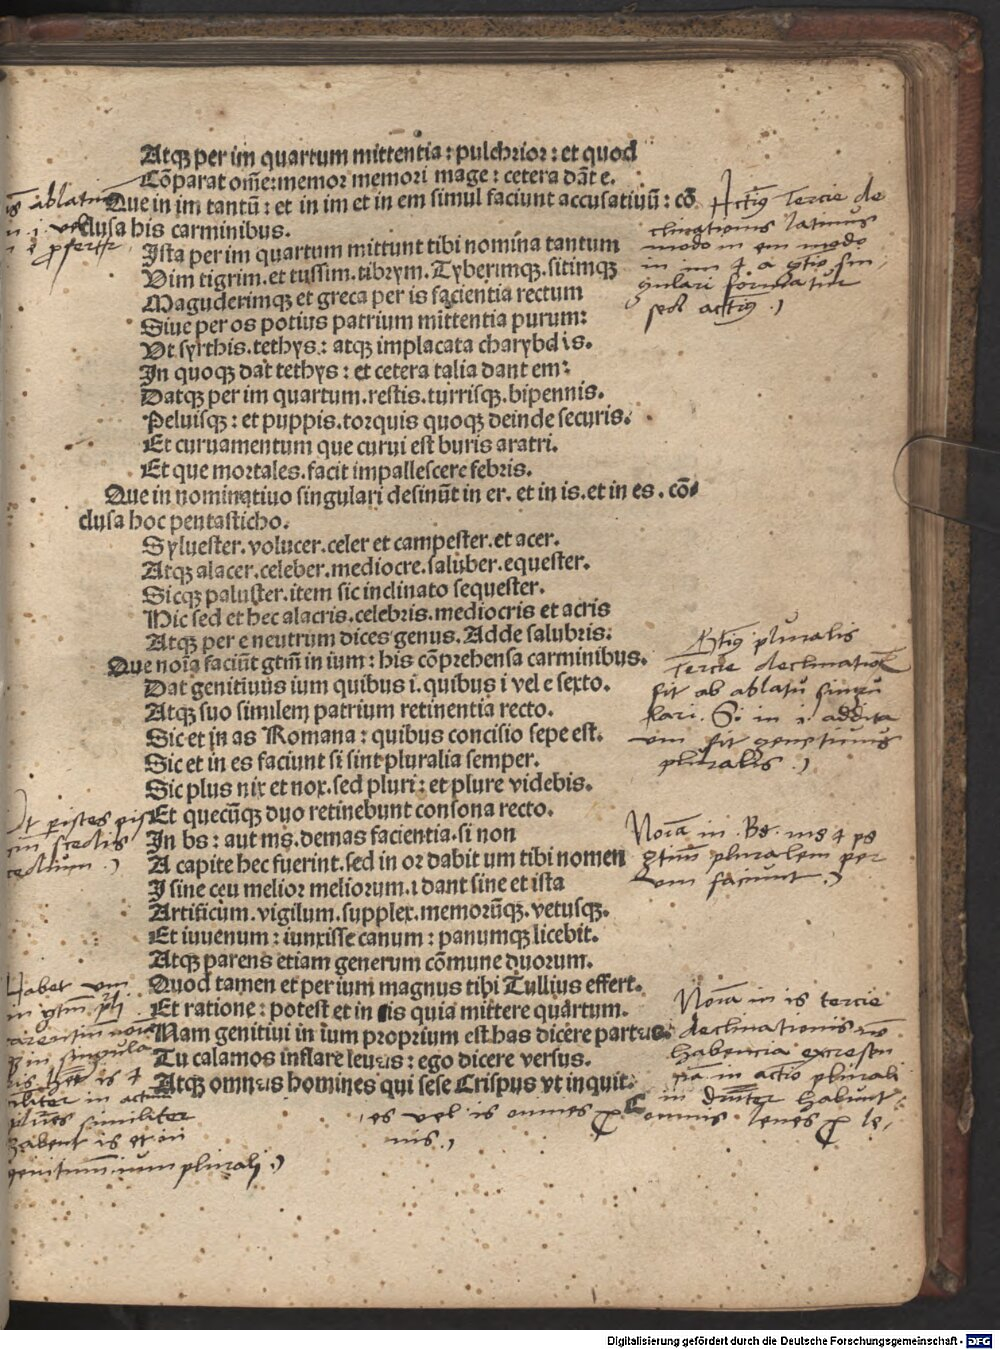 Atqꝫ per im quartum mittentia : pulchrior : et quod
Cōparat om̄e: memor memori mage : cetera dāt e.
Que in im tantū : et in im et in em simul faciunt accusatiuū : cō
clusa his carminibus.
Ista per im quartum mittunt tibi nomina tantum
Vim tigrim. et tussim. tibrym. Tyberimqꝫ. sitimqꝫ
Maguderimqꝫ et greca per is facientia rectum
Siue per os potius patrium mittentia purum:
Vt syrthis. tethys : atqꝫ implacata charybdis.
In quoqꝫ dat tethys : et cetera talia dant em:
Datqꝫ per im quartum. restis. turrisqꝫ. bipennis.
Peluisqꝫ : et puppis. torquis quoqꝫ deinde securis.
Et curuamentum que curui est buris aratri.
Et que mortales. facit impallescere febris.
Que in nominatiuo singulari desinūt in er. et in is. et in es. cō
clusa hoc pentasticho.
Syluester. volucer. celer et campester. et acer.
Atqꝫ alacer. celeber. mediocre. saluber. equester.
Sicqꝫ paluster. item sic inclinato sequester.
Hic sed et hec alacris. celebris. mediocris et acris
Atqꝫ per e neutrum dices genus. Adde salubris.
Que noīa faciūt gtm̄ in ium : his cōprehensa carminibus.
Dat genitiuus ium quibus i. quibus i vel e sexto.
Atqꝫ suo similem patrium retinentia recto.
Sic et in as Romana : quibus concisio sepe est.
Sic et in es faciunt si sint pluralia semper.
Sic plus nix et nox. sed pluri : et plure videbis.
Et quecūqꝫ duo retinebunt consona recto.
In bs : aut ms. demas facientia. si non
A capite hec fuerint. sed in or dabit um tibi nomen
I sine ceu melior meliorum. i dant sine et ista
Artificum. vigilum. supplex. memorūqꝫ. vetusqꝫ.
Et iuuenum : iunxisse canum : panumqꝫ licebit.
Atqꝫ parens etiam generum cōmune duorum.
Quod tamen et per ium magnus tibi Tullius effert.
Et ratione : potest et in is quia mittere quartum.
Nam genitiui in ium proprium est has dicere partes.
Tu calamos inflare leues : ego dicere versus.
Atqꝫ omnes homines qui sese Crispus vt inquit.
tercie de
clinationis latinus
modo in em modo
in im
gulari formatur
sed
pluralis
tercie declinationis
fit ab ablatiuo singu
lari. Si in i. addita
um fit genetiuus
pluralis .)
Noīa in . Bs. ms ps
gtm̄ pluralem per
um faciunt .)
Noīa in is tercie
declinationis
pluralī
habent
es vel is omnes
omnis leues le
nis .)
ablatiuo
Vt
Habet um
in gtm̄
singula
similiter
habent is et in
genitiuum. ium plurali .)
Digitalisierung gefördert durch die Deutsche Forschungsgemeinschaft - DFG